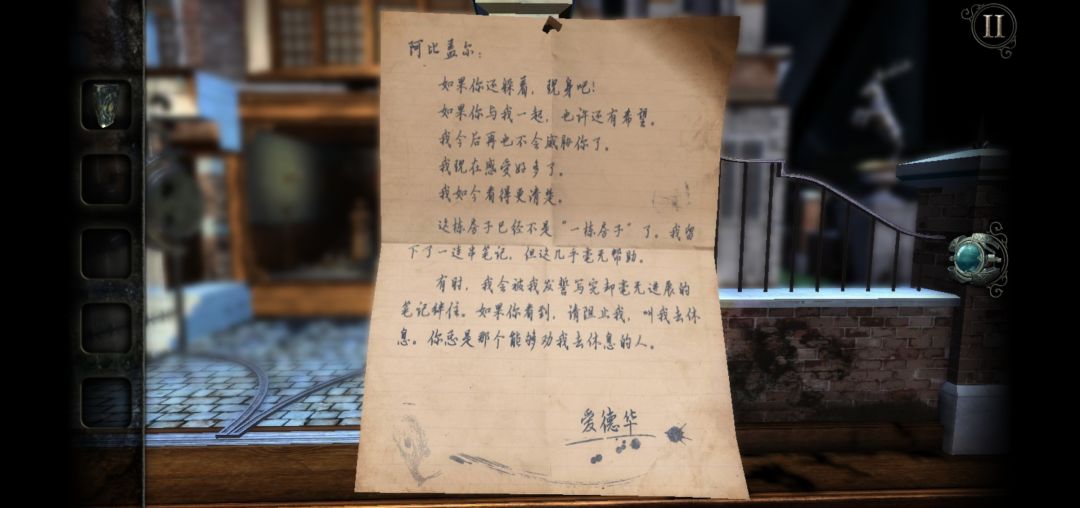 阿比盖尔：
如果你还躲着，现身吧！
如果你与我一起，也许还有希望。
我今后再也不会威胁你了。
我现在感觉好多了。
我如今看得更清楚。
这栋房子已经不是“一栋房子”了，我留
下了一连串笔记，但这几乎毫无帮助。
有时，我会被我发誓写完却毫无进展的
笔记绊住。如果你看到，请阻止我，叫我去休
息。你总是那个能够劝我去休息的人。
爱德华